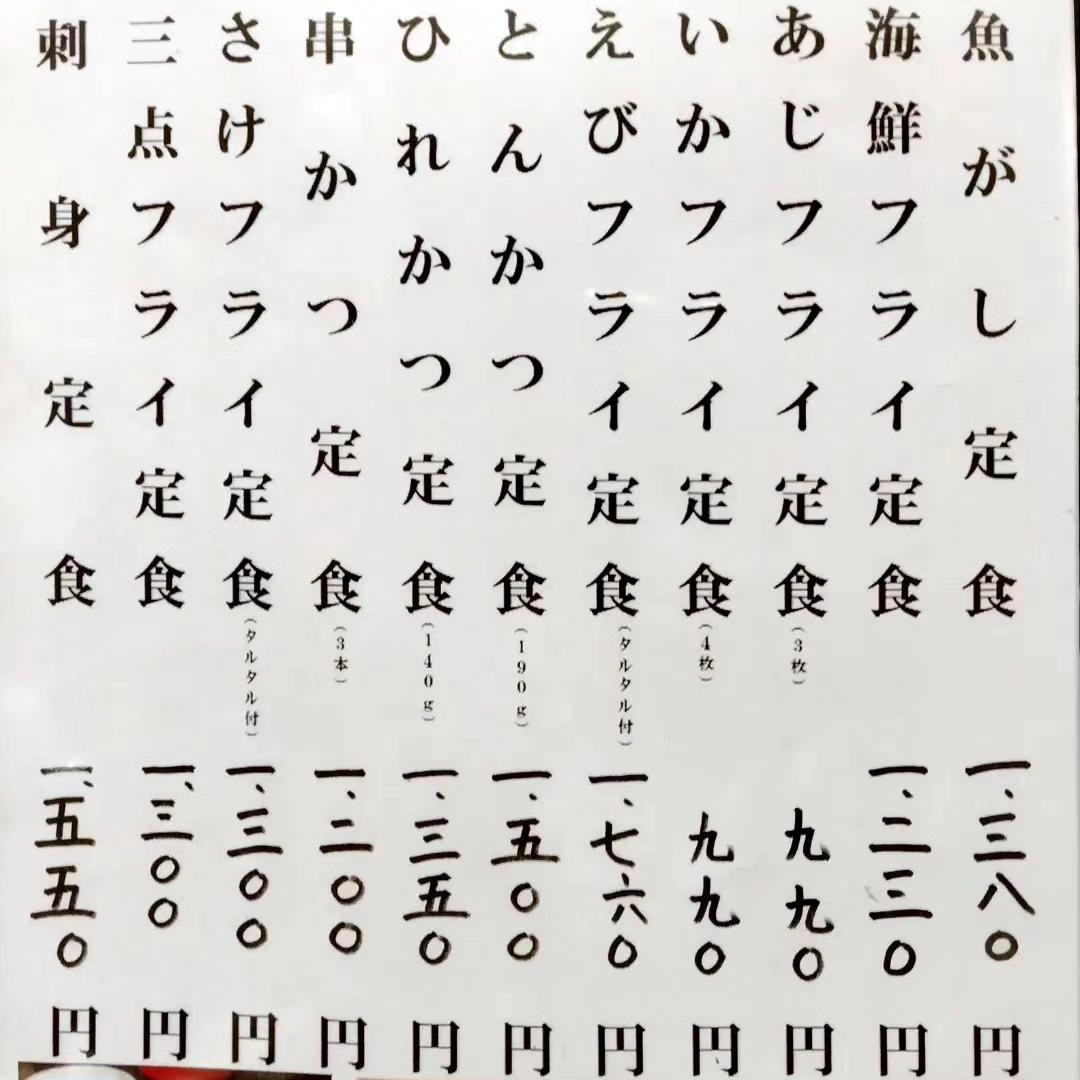 魚がし定食 一、三八〇円
海鮮フライ定食 一、二三〇円
あじフライ定食(3枚) 九九〇円
いかフライ定食(4枚) 九九〇円
えびフライ定食(タルタル付) 一、七六〇円
とんかつ定食(190g) 一、五〇〇円
ひれかつ定食(140g) 一、三五〇円
串かつ定食(3本) 一、二〇〇円
さけフライ定食(タルタル付) 一、三〇〇円
三点フライ定食 一、三〇〇円
刺身定食 一、五五〇円